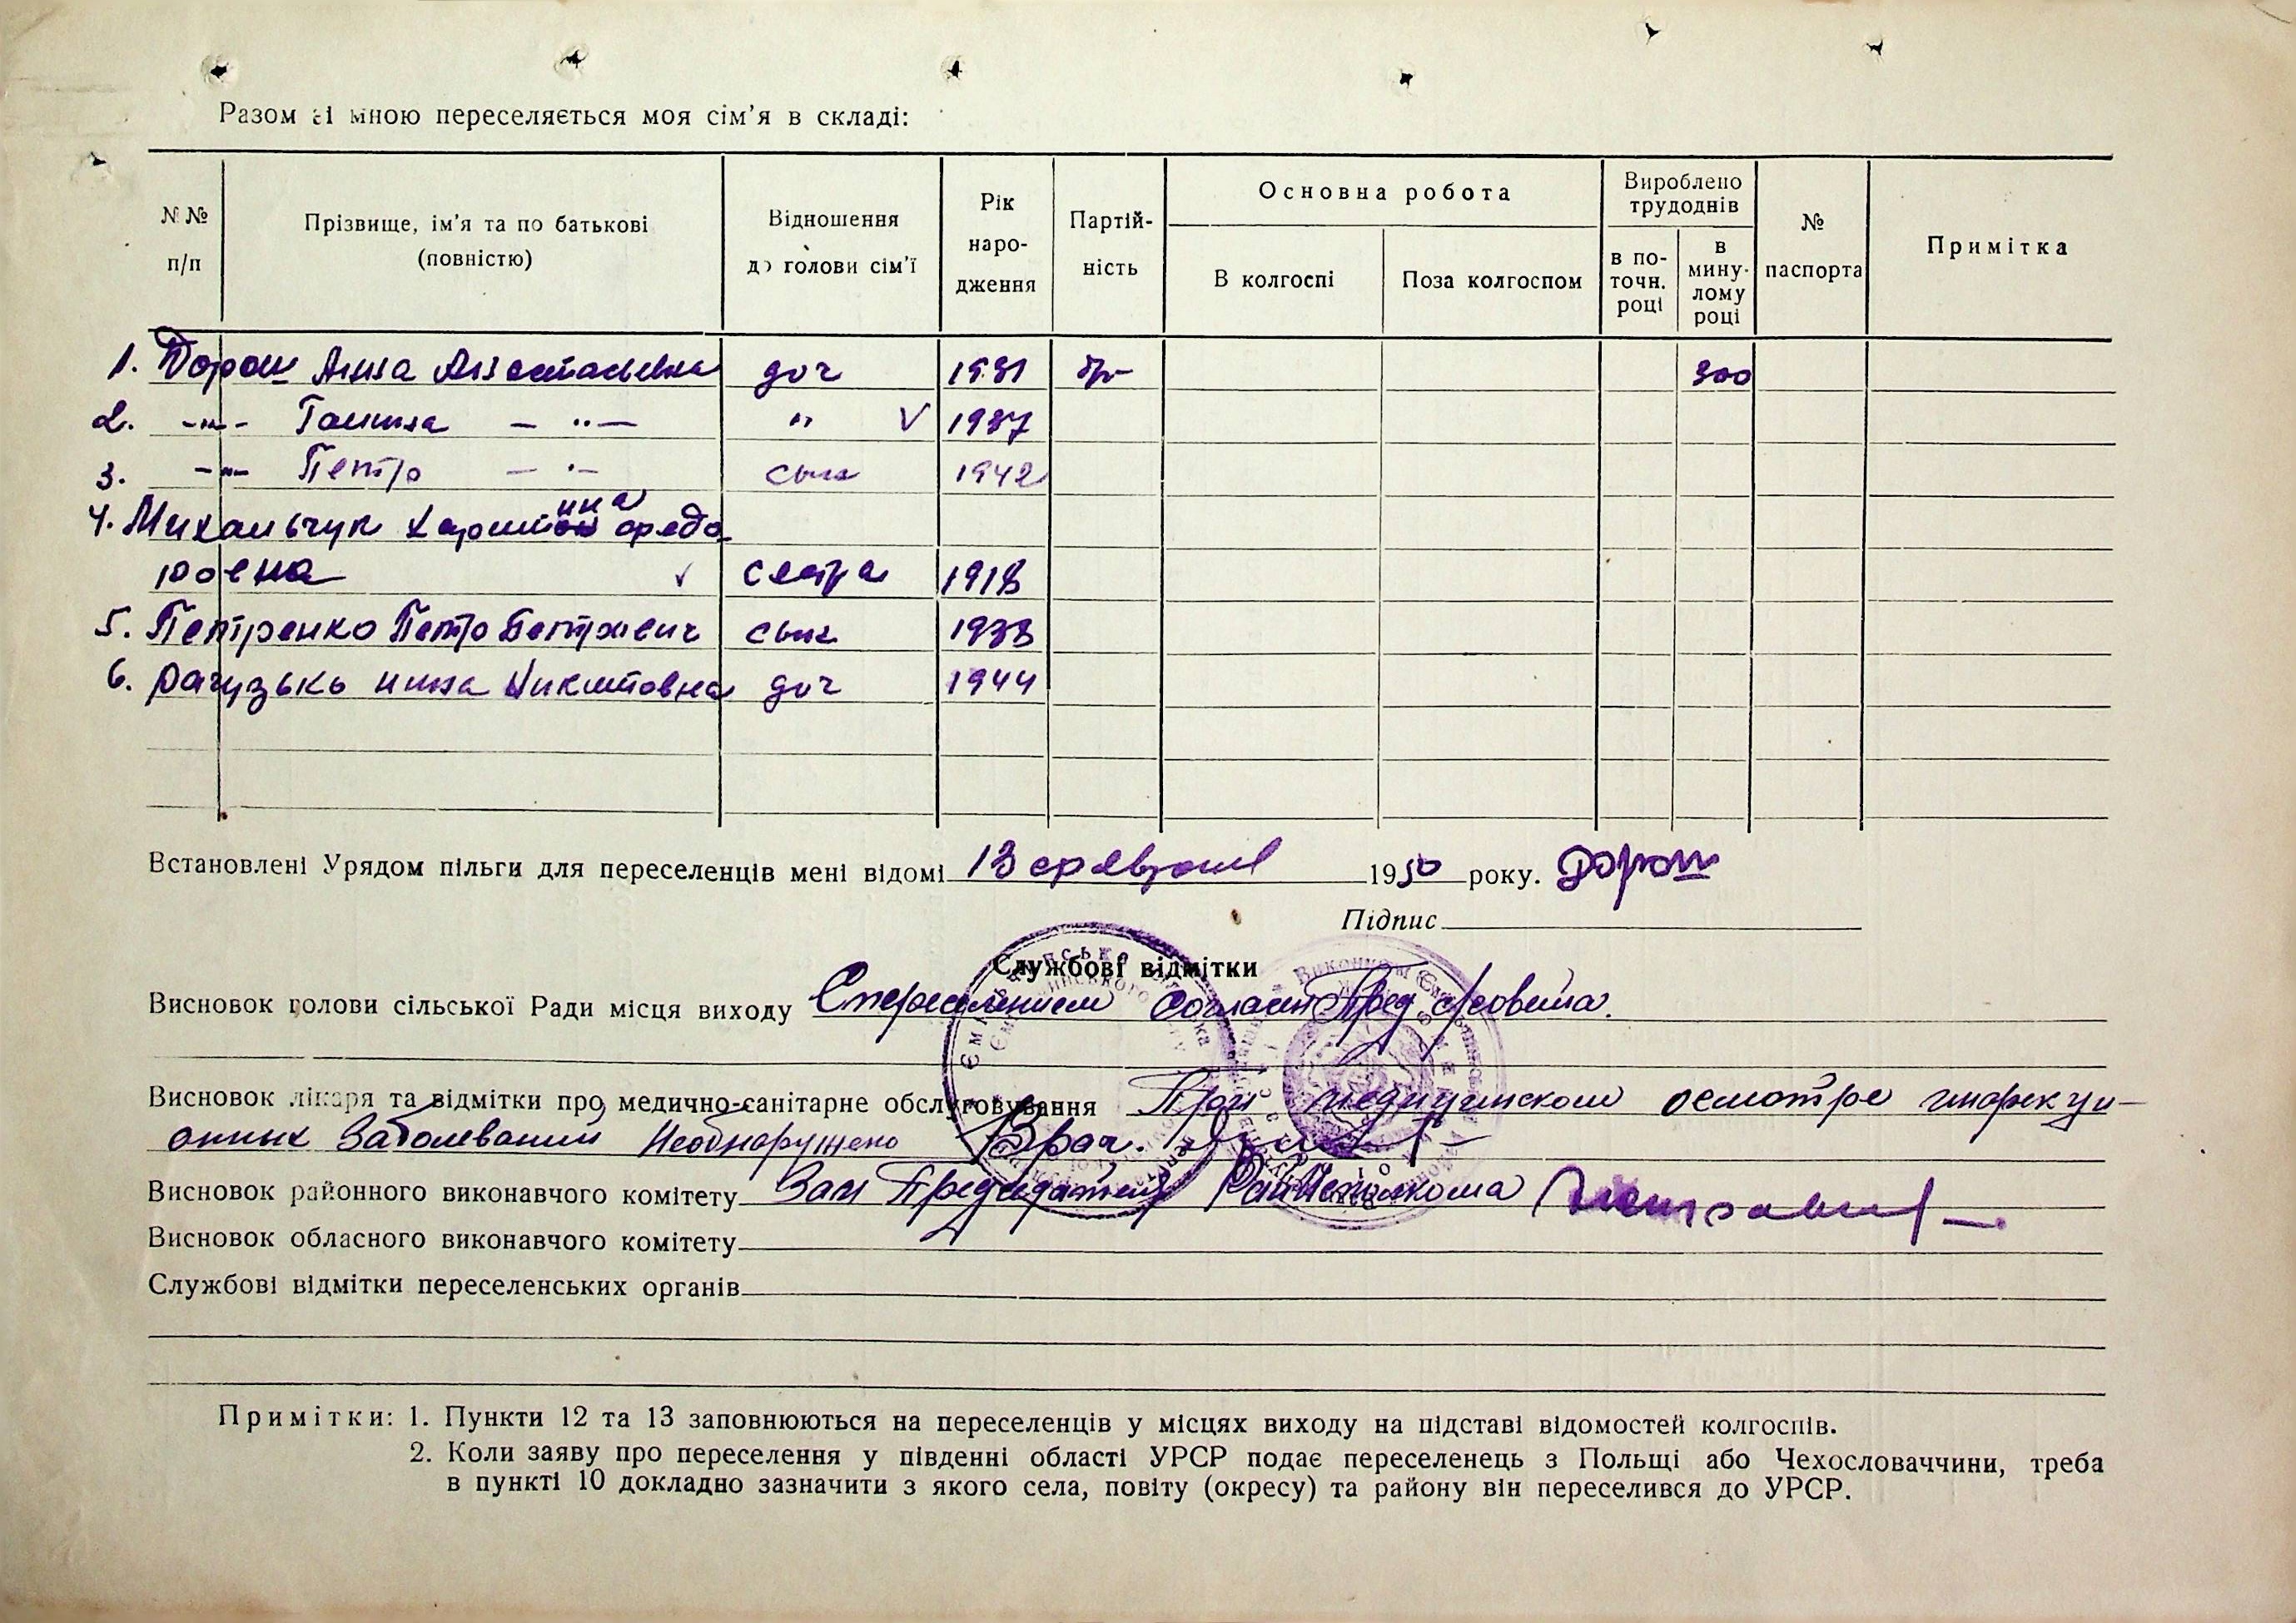 Разом зі мною переселяється моя сім'я в складі:
N№ п/п
Прізвище, ім'я та по батькові (повністю)
Відношення до голови сім'ї
Рік народження
Партійність
Основна робота
В колгоспі
Поза колгоспом
Вироблено трудоднів
в поточн. році
в минулому році
№ паспорта
Примітка
1. Дорош Анна Анастасьевна доч 1931 б/п 300
2. -"- Галина - " - " V 1937
3. -"- Петро - " - сын 1942
4. Михальчук Харитинна федо
ровна ✓ сестра 1918
5. Петренко Петро Петрович сын 1938
6. Рагузько нина Никитовна доч 1944
Встановлені Урядом пільги для переселенців мені відомі 13 февраля 1950 року. Дорош
Підпис
Службові відмітки
Висновок голови сільської Ради місця виходу С переселением согласен Пред. с/совета.
Висновок лікаря та відмітки про медично-санітарне обслуговування При медицинском осмотре инфекци-
онных заболеваний необнаружено Врач.
Висновок районного виконавчого комітету Зам Председателя Райисполкома
Висновок обласного виконавчого комітету
Службові відмітки переселенських органів
Примітки: 1. Пункти 12 та 13 заповнюються на переселенців у місцях виходу на підставі відомостей колгоспів.
2. Коли заяву про переселення у південні області УРСР подає переселенець з Польщі або Чехословаччини, треба
в пункті 10 докладно зазначити з якого села, повіту (окресу) та району він переселився до УРСР.